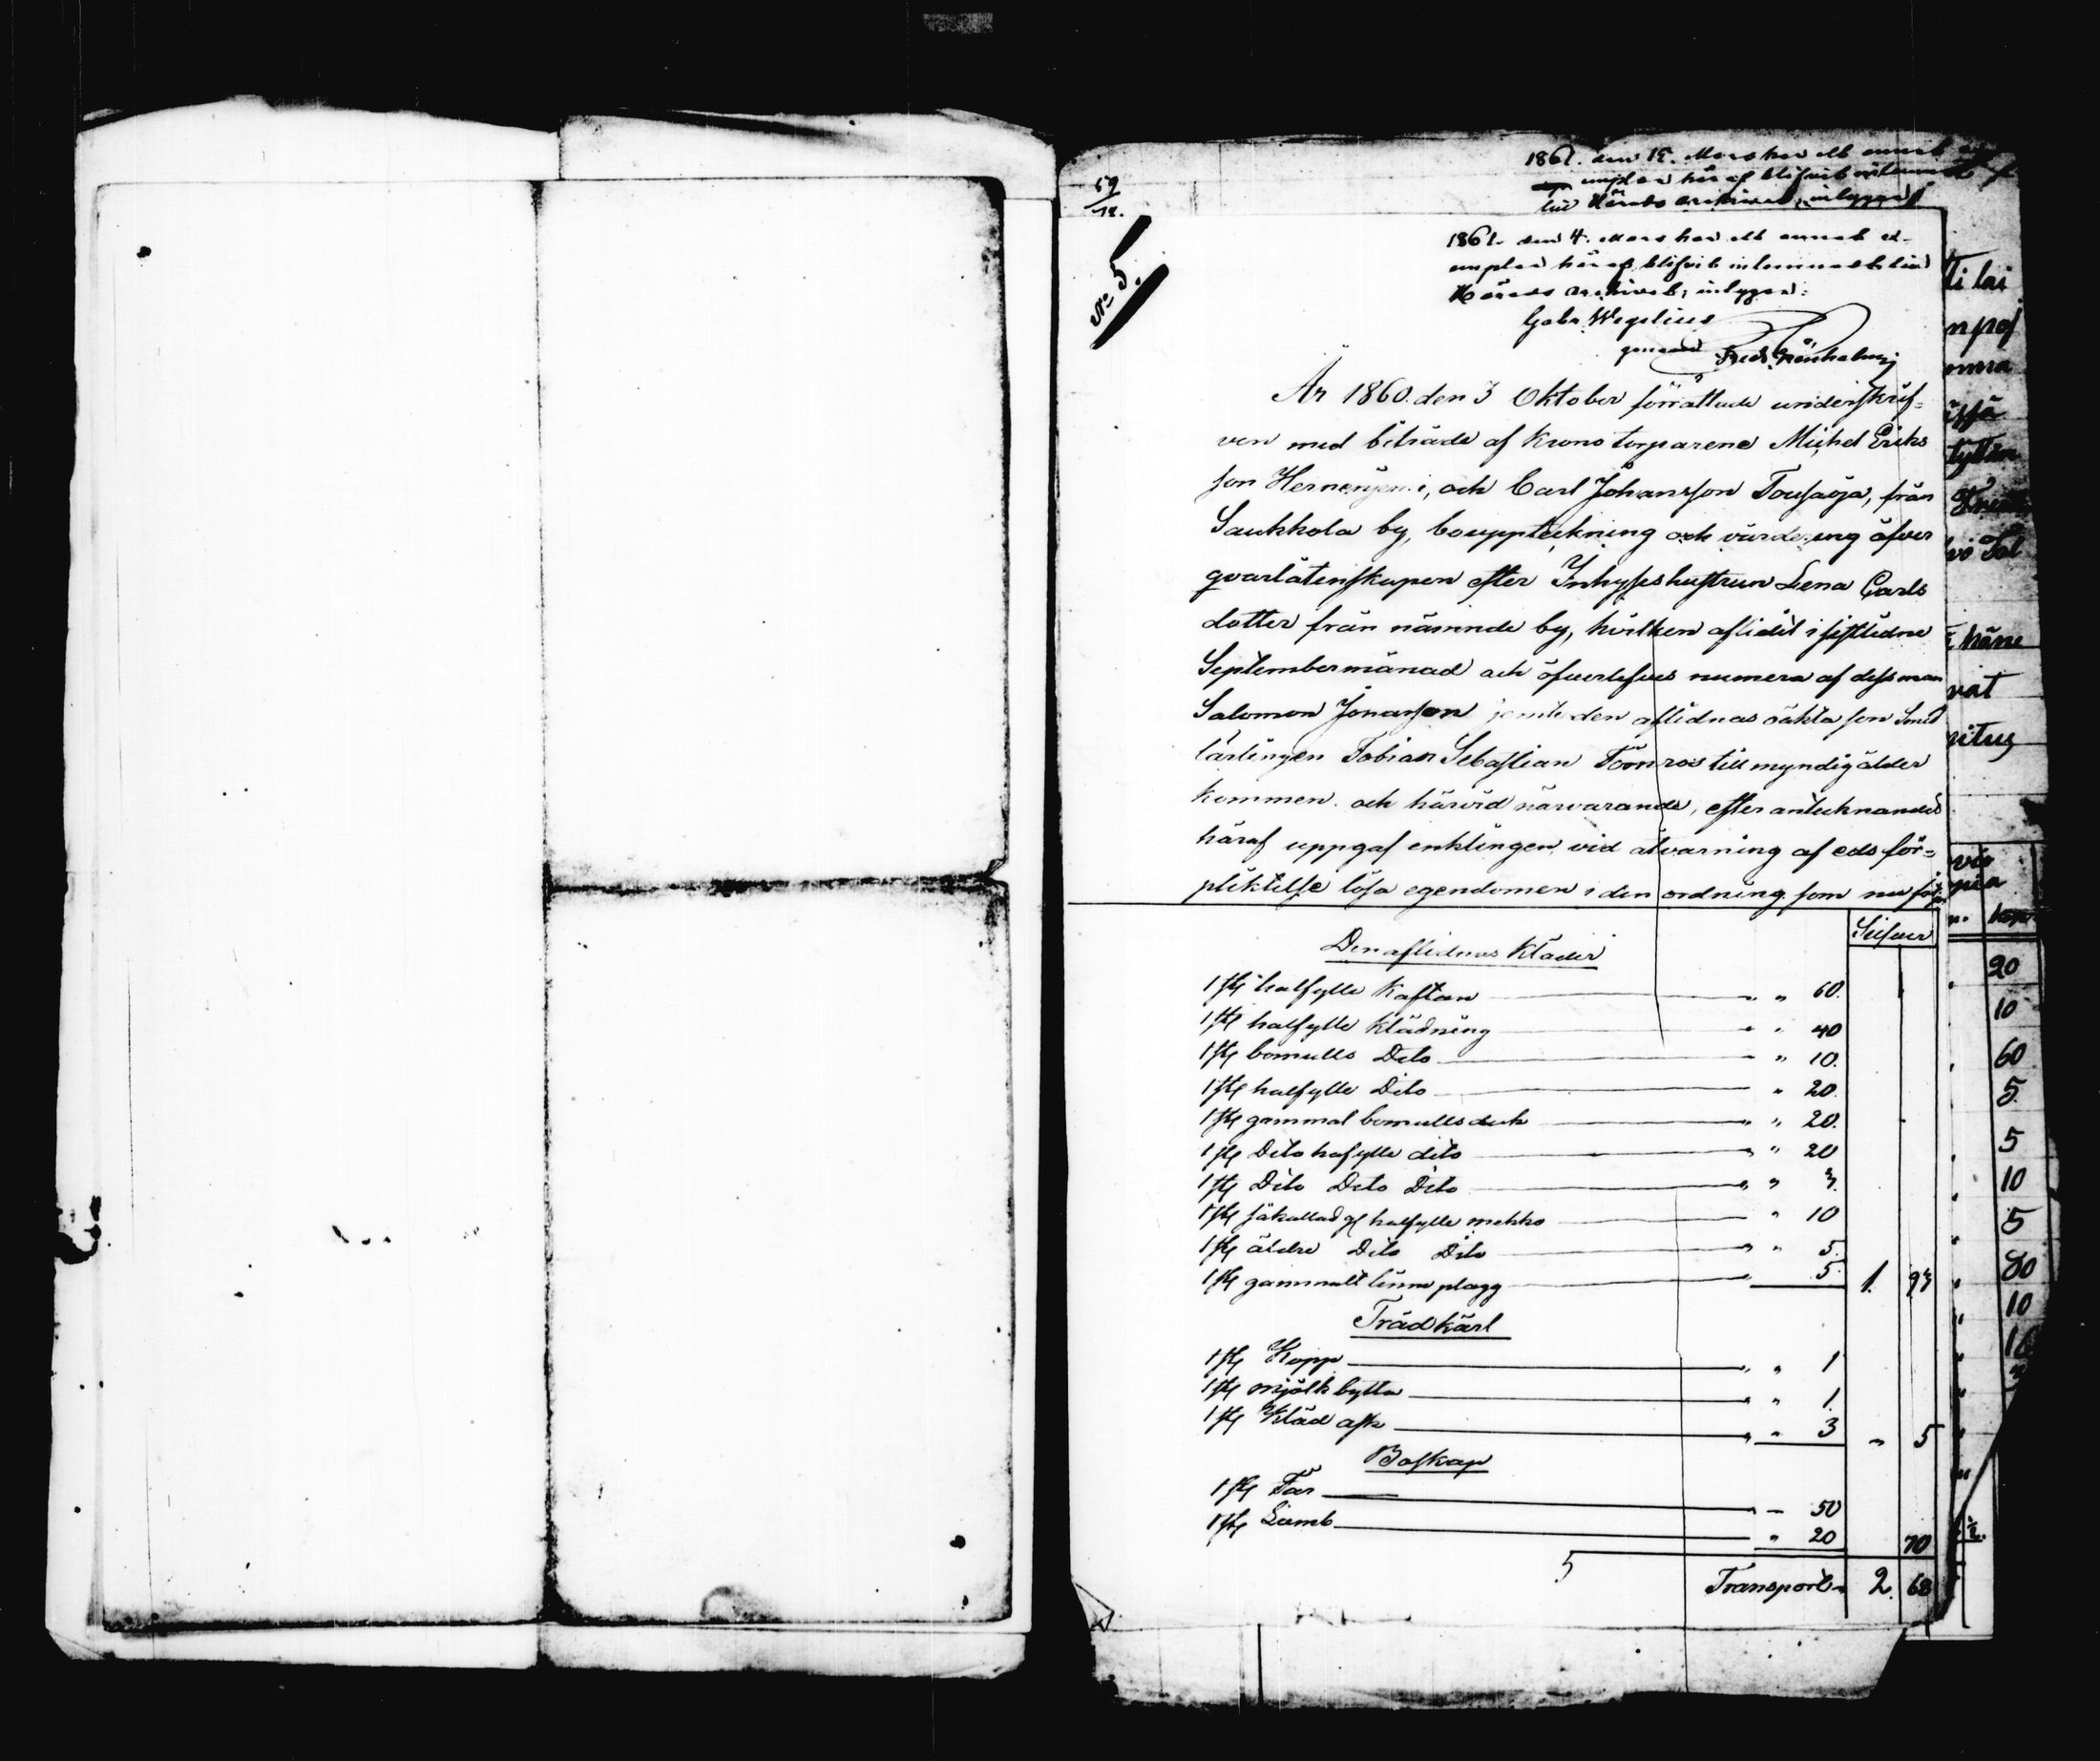 1861. den 12. Mars har ett annat ex-
emplar häraf blifvit inlemnadt
till Härads arkivet; intygar
59
12.
No 5.
1861. den 4. Mars har ett annat ex-
emplar häraf blifvit inlemnadt till
Härads Arkivet; intygar:
Gabr. Wegelius
genom Fredr. Grönholm
År 1860. den 3 Oktober förrättade underskrif-
ven med biträde af Krono torparene Michel Eriks
son Hernenjemi, och Carl Johansson Tousaoja, från
Saukkola by, bouppteckning och värdering öfver
qvarlåtenskapen efter Inhyseshustrun Lena Carls
dotter från nämnde by, hvilken aflidit i sistlidne
Septembermånad och öfverlefves numera af dess man
Salomon Jonasson jemte den aflidnas oäkta son Smed
lärlingen Tobias Sebastian Törnroos till myndig ålder
kommen och härvid närvarande, efter antecknandet
häraf uppgaf enklingen vid åtvarning af eds för-
pliktelse lösa egendomen i den ordning som nu föl
Silfver
Den aflidnas Kläder
1 st halfylle Kaftan " " 60.
1 st halfylle Klädning " " 40
1 st bomulls Dito " " 10.
1 st halfylle Dito " 20.
1 st gammal bomullsduk " " 20.
1 st Dito hafylle dito " " 20
1 st Dito Dito Dito " " 3.
1 st så kallad halfylle mekko " 10
1 st äldre Dito Dito " " 5.
1 st gammalt linne plagg " 5. 1. 93
Trädkärl
1 st Kopp " " 1
1 st mjölk bytta " " 1.
1 st Kläd ask " " 3 " 5
Boskap
1 st Får " 50
1 st Lamb " 20 70
5
Transport 2. 68
ti lai
vat
kop
20
10
60
5.
5
10
5
80
10